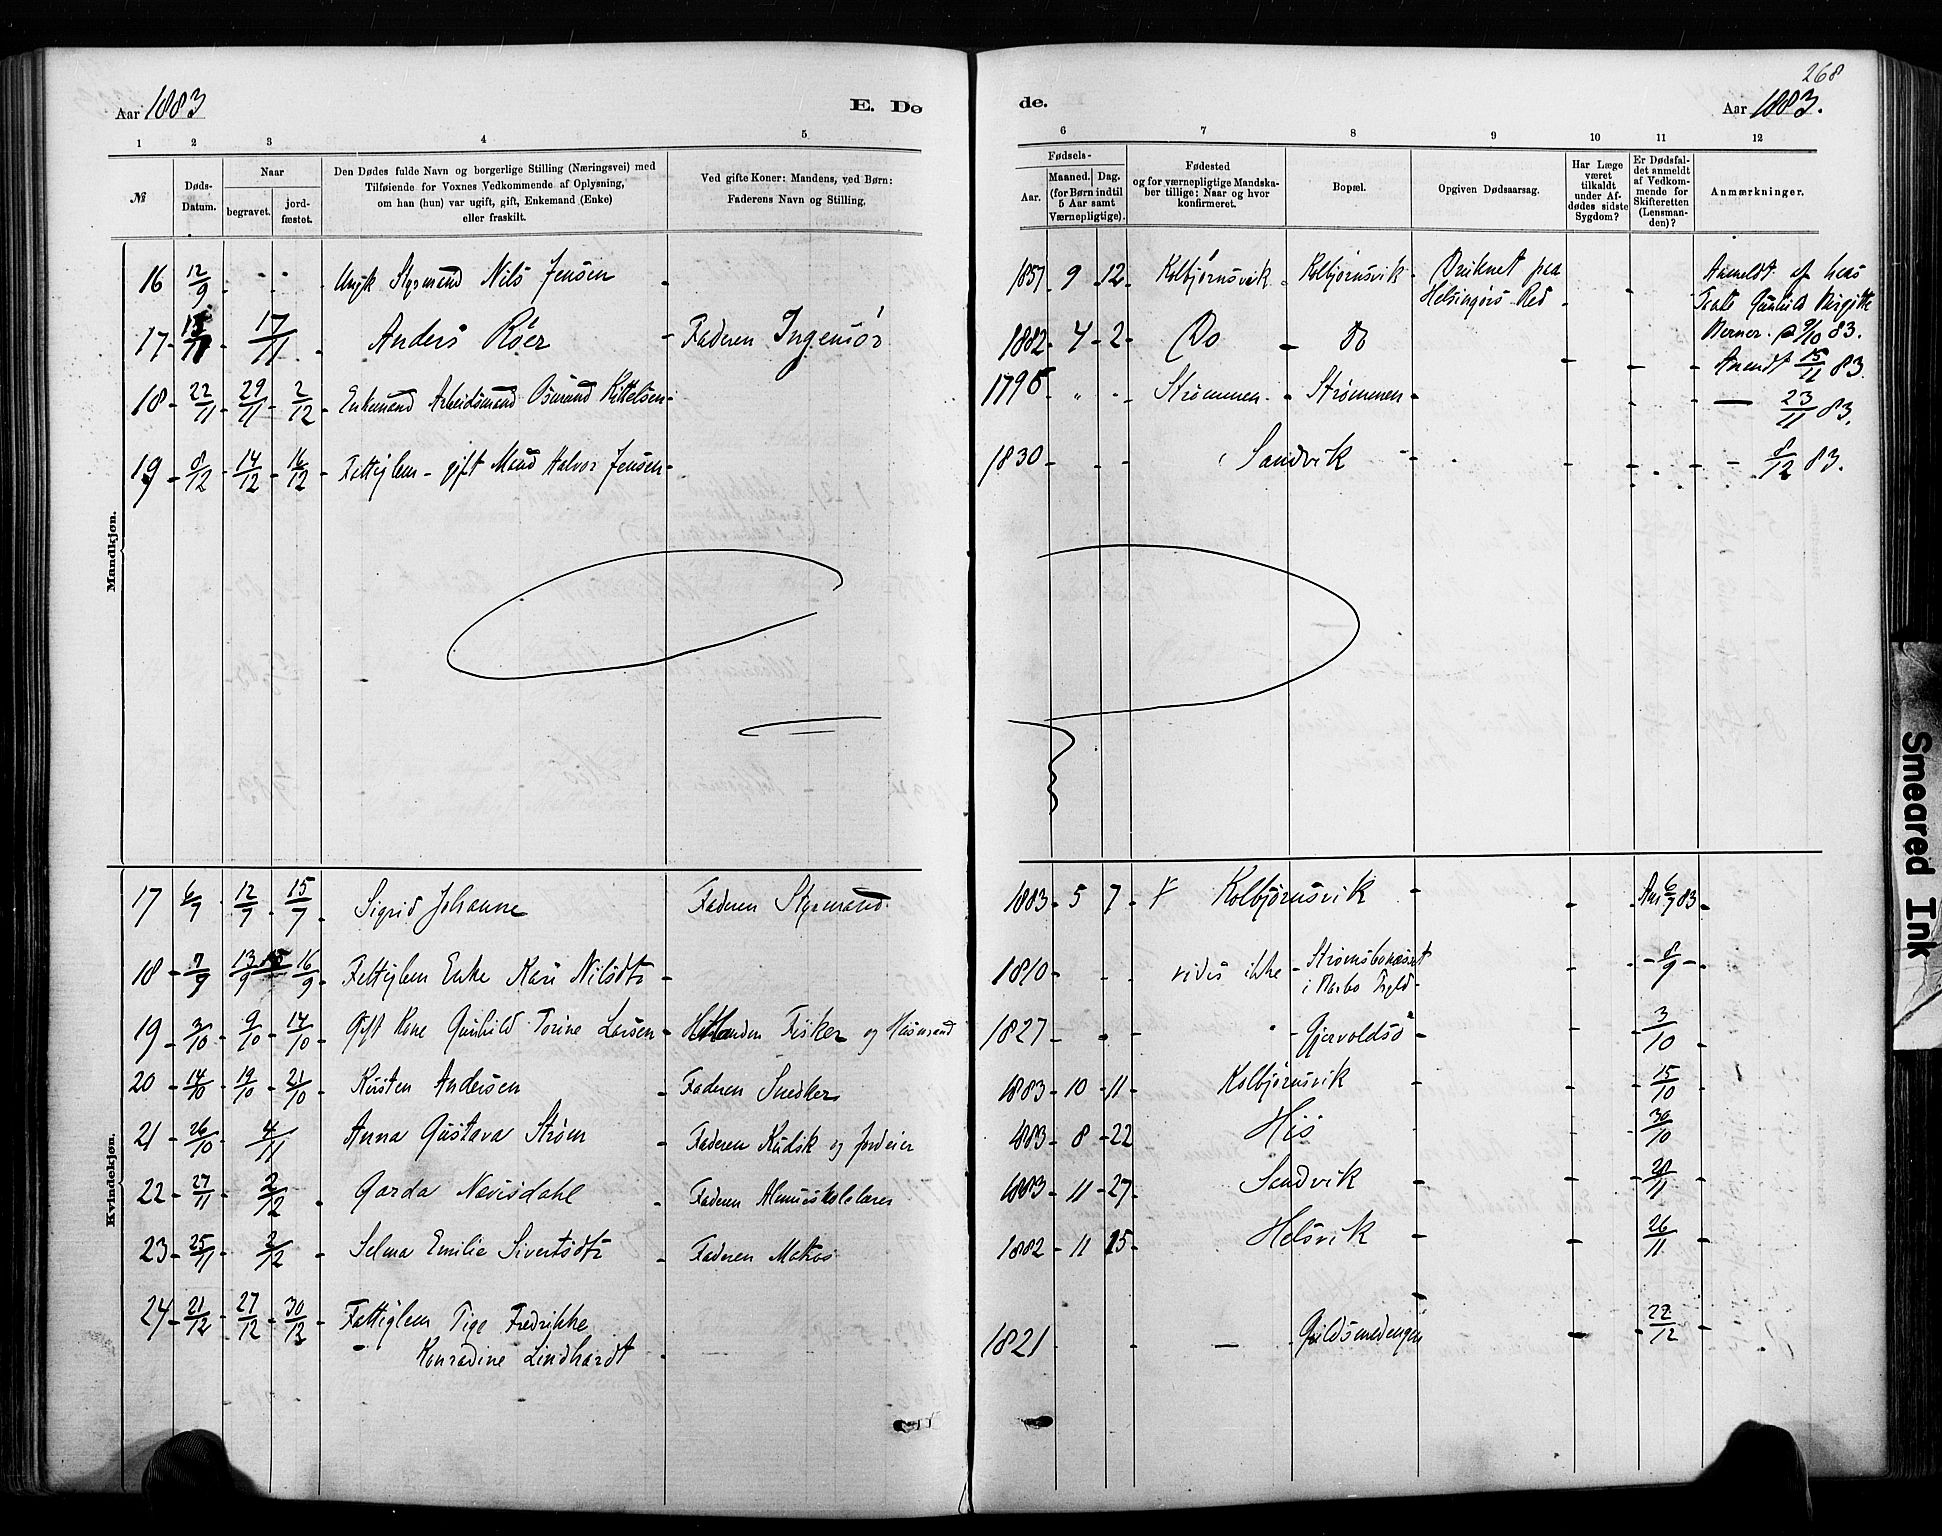 268
Aar 1883 E. Dø
de. Aar 1883.
1 2 3 4 5
6 7 8 9 10 11 12
№
Døds-
Datum.
Naar
begravet.
jord-
fæstet.
Den Dødes fulde Navn og borgerlige Stilling (Næringsvei) med
Tilføiende for Voxnes Vedkommende af Oplysning,
om han (hun) var ugift, gift, Enkemand (Enke)
eller fraskilt.
Ved gifte Koner: Mandens, ved Børn:
Faderens Navn og Stilling.
Fødsels-
Aar.
Maaned. Dag.
(for Børn indtil
5 Aar samt
Værnepligtige).
Fødested
og for værnepligtige Mandska-
ber tillige: Naar og hvor
konfirmeret.
Bopæl.
Opgiven Dødsaarsag.
Har Læge
været
tilkaldt
under Af-
dødes sidste
Sygdom?
Er Dødsfal-
det anmeldt
af Vedkom-
mende for
Skifteretten
(Lensman-
den)?
Anmærkninger.
Mandkjøn.
16 12/9 - - Ungk Styrmand Nils Jensen - 1857 9 12 Kolbjørnsvik - Kolbjørnsvik Druknet paa
Helsingørs Red
Anmeldt af hans
Berner. 9/10 83.
17 17/11 Anders Röer - Faderen Ingeniör 1882 4 2 Do Do Anmdt 15/11 83.
18 22/11 29/11 2/12 Enkemand Arbeidsmand Osmund Kittelsen 1795 " - Strømmen - Strømmen - 23/11 83.
19 8/12 14/12 16/12 Fattiglem - gift Mand Halvor Jensen 1830 - Sandvik - 8/12 83.
Kvindekjøn.
17 6/7 12/7 15/7 Sigrid Johanne Faderen Styrmand 1883 5 7 Kolbjørnsvik Anm 6/7 83
18 7/9 13/9 16/9 Fattiglem Enke Kari Nilsdtr 1810 vides ikke - Strømsbonæset
i Barbo Sgld. 8/9
19 3/10 9/10 14/10 Gift Kone Gunhild Torine Larsen - Manden Fisker og Husmand 1827 " Gjervoldsø 3/10
20 14/10 19/10 21/10 Kirsten Andersen - Faderen Snedker 1883 10 11 Kolbjørnsvik 15/10
21 26/10 4/11 Anna Gustava Strøm - Faderen Kudsk og Jordeier 1883 8 22 His 30/10
22 27/11 2/12 Garda Nævisdahl - Faderen Almueskolelærer 1883 11 27 Sandvik 28/11
23 25/11 2/12 Selma Emilie Sivertsdtr - Faderen Matros 1882 11 15 Helsvik 26/11
24 21/12 27/12 30/12 Fattiglem Pige Fredrikke
Konradine Lindhardt 1821 - Guldsmedengen 22/12
Smeared Ink